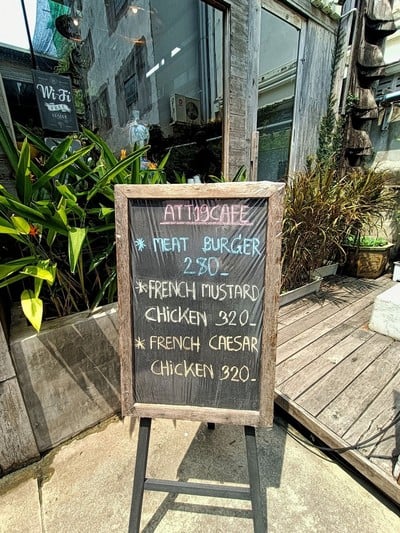 Wi Fi
ATT19CAFE
* MEAT BURGER
280_
*FRENCH MUSTARD
CHICKEN 320_
* FRENCH CAESAR
CHICKEN 320_